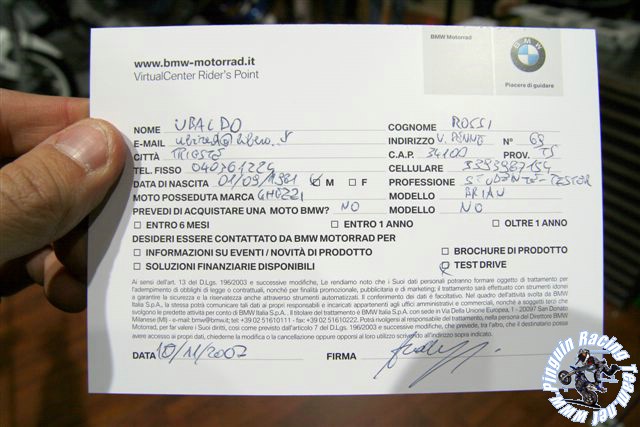 BMW Motorrad
BMW
Piacere di guidare
www.bmw-motorrad.it
VirtualCenter Rider's Point
NOME UBALDO COGNOME ROSSI
E-MAIL INDIRIZZO V. PENNE N° 69
CITTÀ TRIESTE C.A.P. 34100 PROV. TS
TEL. FISSO 040761224 CELLULARE 3393987154
DATA DI NASCITA 01/09/1981 M F PROFESSIONE STUDENTE-TESTER
MOTO POSSEDUTA MARCA GHEZZI MODELLO BRIAN
PREVEDI DI ACQUISTARE UNA MOTO BMW? NO MODELLO NO
ENTRO 6 MESI ENTRO 1 ANNO OLTRE 1 ANNO
DESIDERI ESSERE CONTATTATO DA BMW MOTORRAD PER
INFORMAZIONI SU EVENTI / NOVITÀ DI PRODOTTO BROCHURE DI PRODOTTO
SOLUZIONI FINANZIARIE DISPONIBILI TEST DRIVE
Ai sensi dell'art. 13 del D.Lgs. 196/2003 e successive modifiche, Le rendiamo noto che i Suoi dati personali potranno formare oggetto di trattamento per
l'adempimento di obblighi di legge o contrattuali, nonché per finalità promozionale, pubblicitaria e di marketing; il trattamento sarà effettuato con strumenti idonei
a garantire la sicurezza e la riservatezza anche attraverso strumenti automatizzati. Il conferimento dei dati è facoltativo. Nel quadro dell'attività svolta da BMW
Italia S.p.A., la stessa potrà comunicare tali dati ai propri responsabili e incaricati appartenenti agli uffici amministrativi e commerciale, nonché a soggetti terzi che
svolgono le predette attività per conto di BMW Italia S.p.A.. Il titolare del trattamento è BMW Italia S.p.A. con sede in Via Della Unione Europea, 1 - 20097 San Donato
Milanese (MI) - e-mail: bmw@bmw.it; tel: +39 02 51610111 - fax: +39 02 51610222. Potrà rivolgersi al responsabile del trattamento, nella persona del Direttore BMW
Motorrad, per far valere i Suoi diritti, così come previsto dall'articolo 7 del D.Lgs. 196/2003 e successive modifiche, che prevede, tra l'altro, che il destinatario possa
avere accesso ai propri dati, chiederne la modifica o la cancellazione oppure opporsi al loro utilizzo scrivendo all'indirizzo sopra indicato.
DATA 10/11/2007 FIRMA
www.Pinguin Racing Team.net